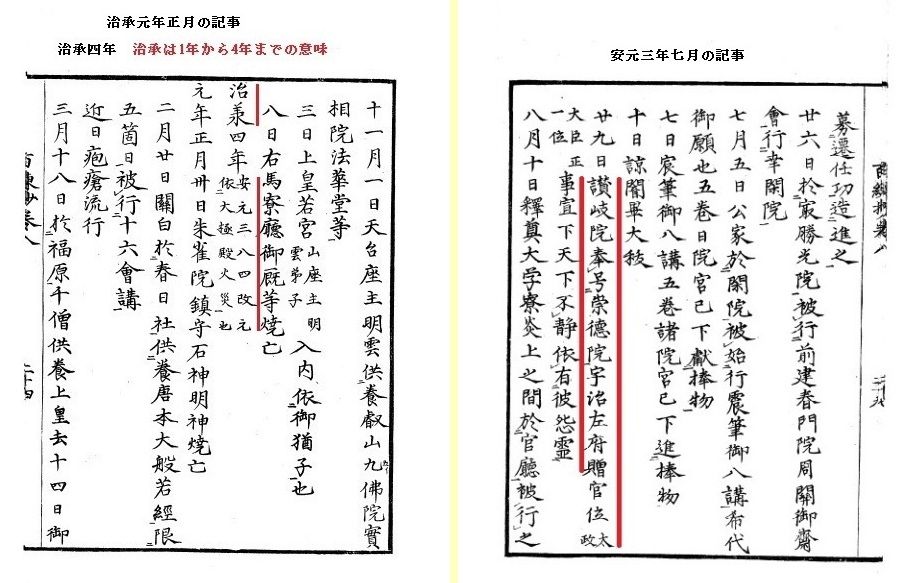 治承元年正月の記事
治承四年 治承は1年から4年までの意味
十一月一日天台座主明雲供養叡山九佛院實
相院法華堂等
三日上皇若宮山座主明雲弟子入内依御猶子也
八日右馬寮廳御厩等燒亡
治承四年安元三八四改元依大極殿火災也
元年正月卅日朱雀院鎮守石神明神燒亡
二月廿日關白於春日社供養唐本大般若經限
五箇日被行十六會講
近日疱瘡流行
三月十八日於福原千僧供養上皇去十四日御
二十四
安元三年七月の記事
募遷任功造進之
廿六日於最勝光院被行前建春門院周關御齋
會行幸閑院
七月五日公家於閑院被始行震筆御八講希代
御願也五卷日院宮已下獻捧物
七日宸筆御八講五卷諸院宮已下進捧物
十日諒闇畢大秡
廿九日讃岐院奉号崇德院宇治左府贈官位太政
大臣正一位事宣下天下不静依有彼怨靈
八月十日釋奠大学寮炎上之間於官廳被行之